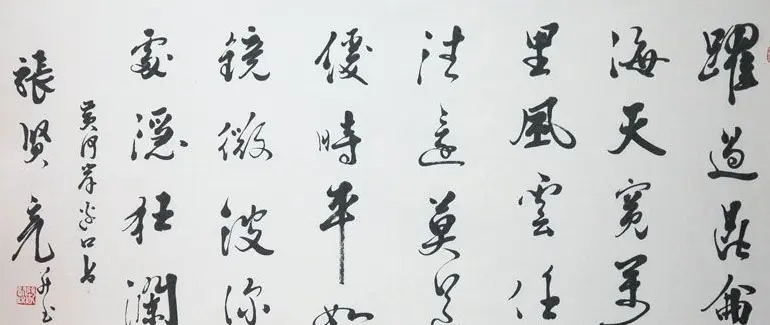 躍過昆侖
海天寬萬
里風雲任
往還莫
優時平如
鏡微波深
處隱狂瀾
黃河岸邊口占
張賢亮并書